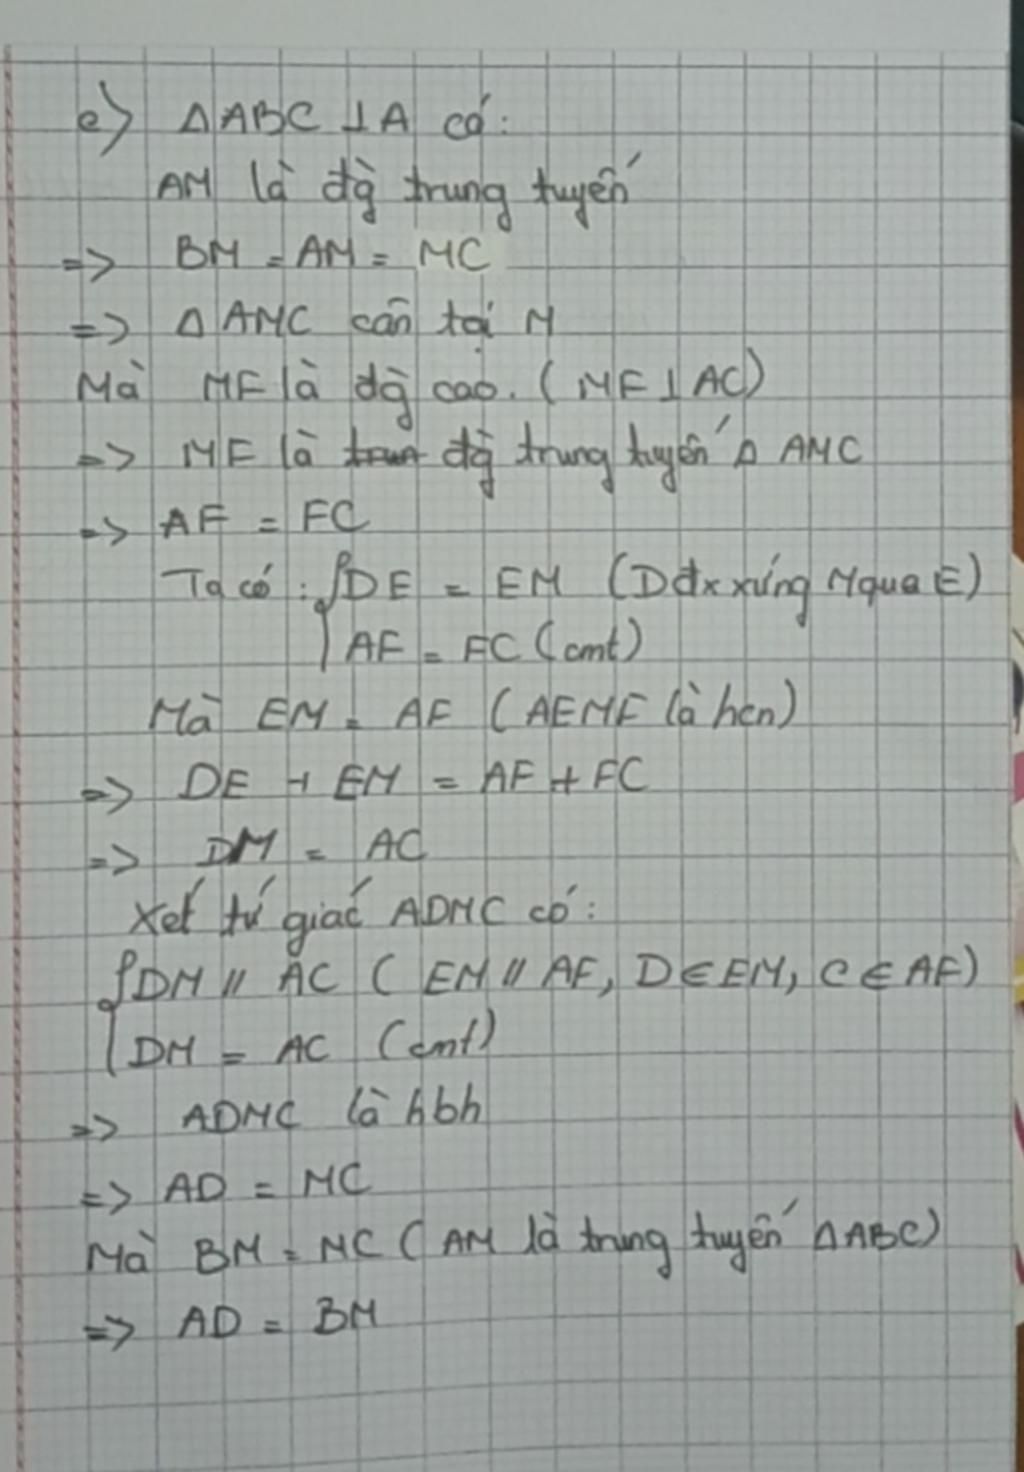 e) ΔABC ⊥ A có:
AM là đg̀ trung tuyến
=> BM = AM = MC
=> Δ AMC cân tại M
Mà MF là đg̀ cao. (MF ⊥ AC)
=> MF là đg̀ trung tuyến Δ AMC
=> AF = FC
Ta có: { DE = EM (D đx xứng M qua E)
AF = FC (cmt)
Mà EM = AF (AEMF là hcn)
=> DE + EM = AF + FC
=> DM = AC
Xét tứ giác ADMC có:
{ DM // AC (EM // AF, D ∈ EM, C ∈ AF)
DM = AC (cmt)
=> ADMC là hbh
=> AD = MC
Mà BM = MC (AM là trung tuyến ΔABC)
=> AD = BM